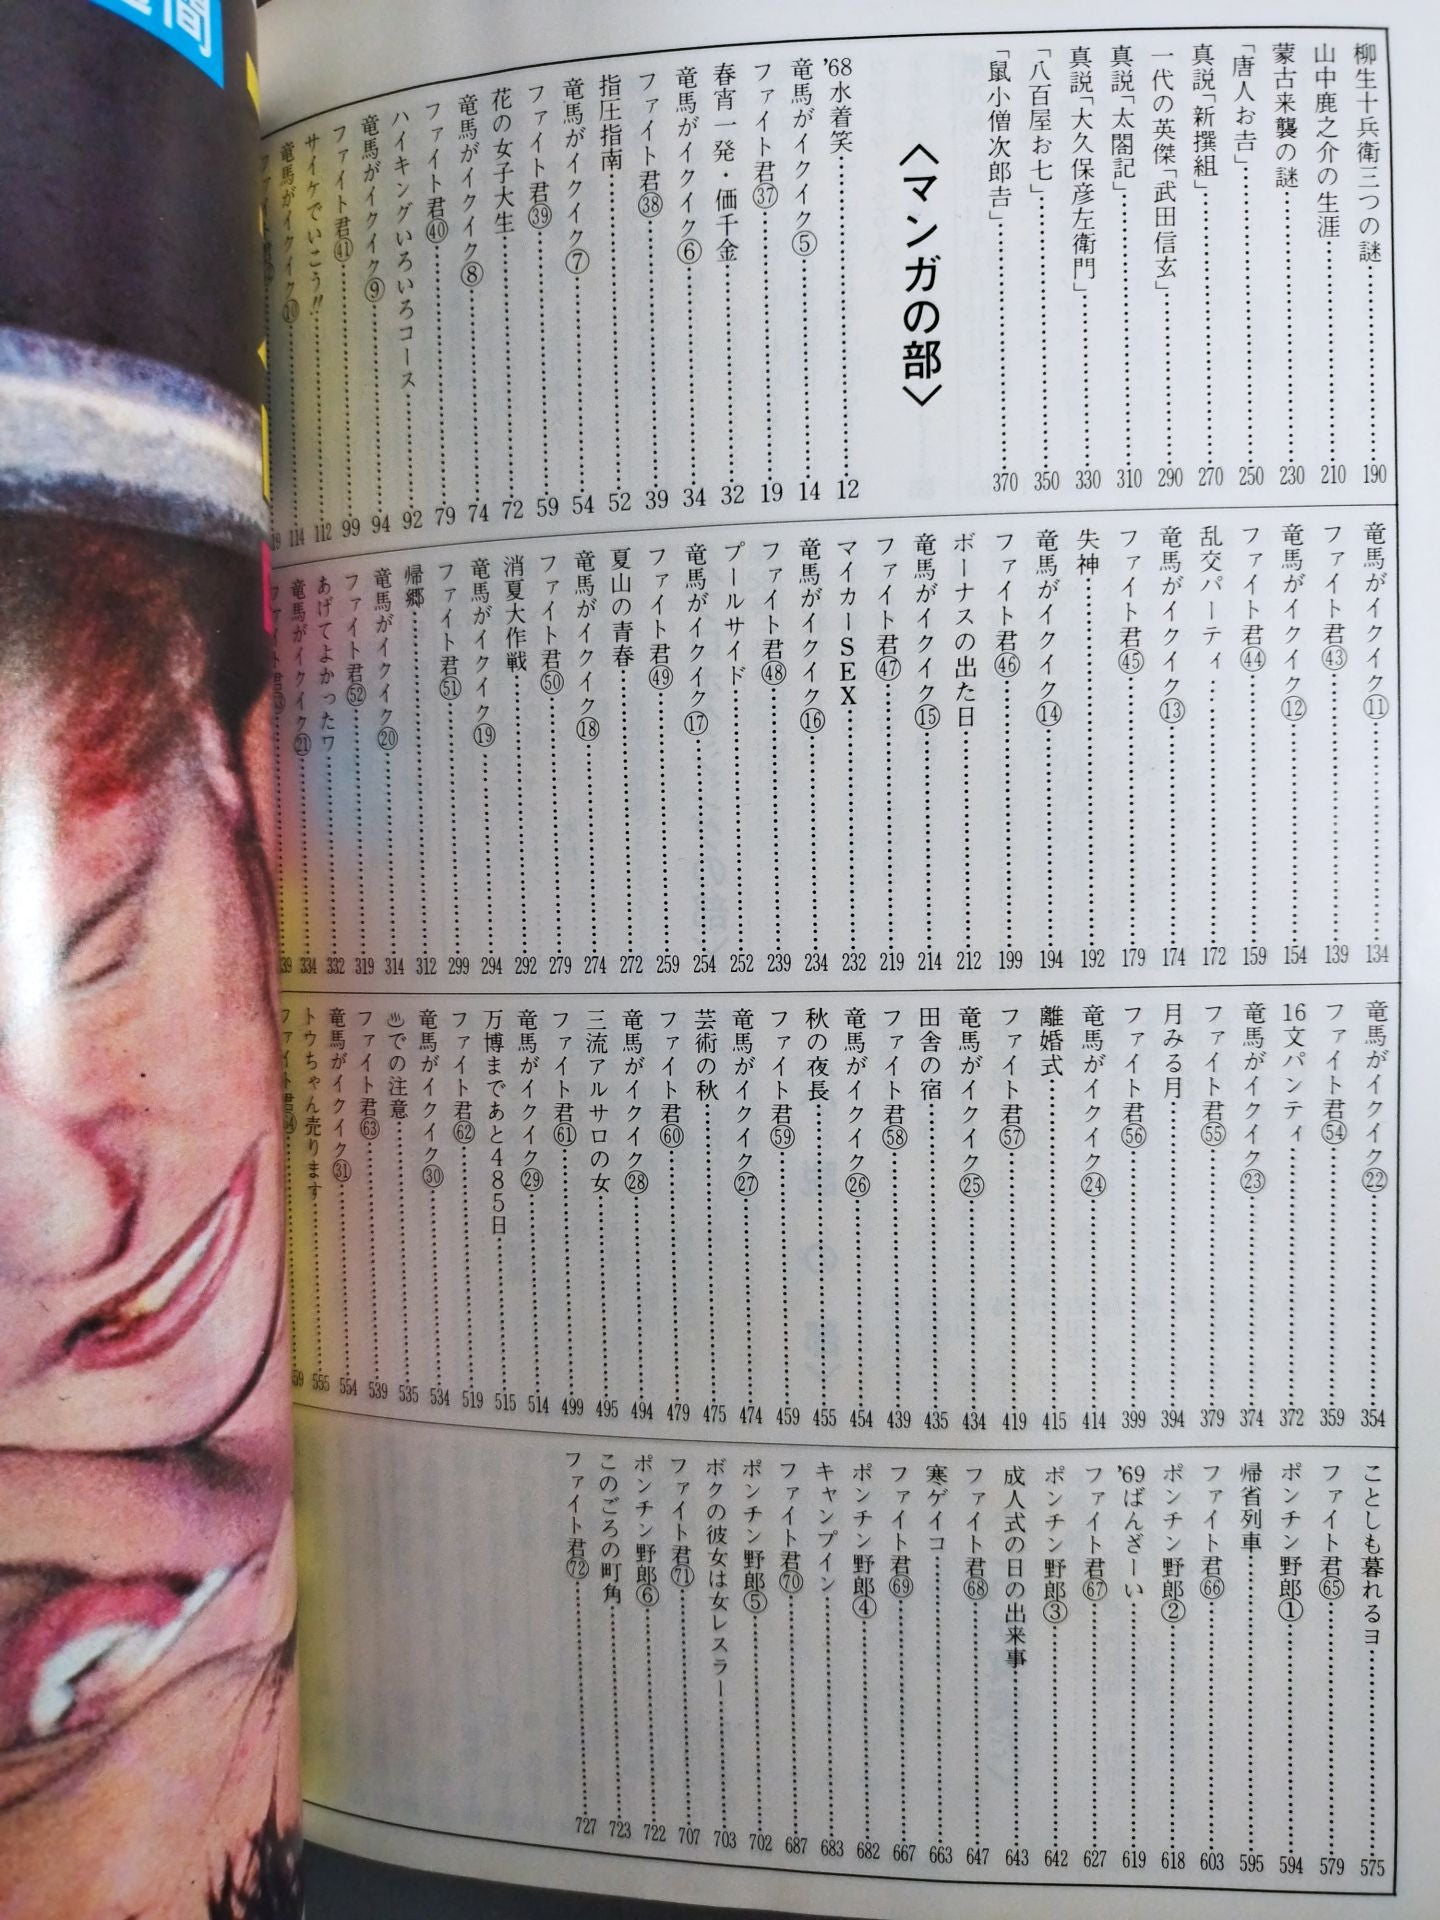 間
柳生十兵衛三つの謎……190
山中鹿之介の生涯……210
蒙古来襲の謎……230
「唐人お吉」……250
真説「新撰組」……270
一代の英傑「武田信玄」……290
真説「太閤記」……310
真説「大久保彦左衛門」……330
「八百屋お七」……350
「鼠小僧次郎吉」……370
〈マンガの部〉
'68水着笑……12
竜馬がイクイク⑤……14
ファイト君㊲……19
春宵一発・価千金……32
竜馬がイクイク⑥……34
ファイト君㊳……39
指圧指南……52
竜馬がイクイク⑦……54
ファイト君㊴……59
花の女子大生……72
竜馬がイクイク⑧……74
ファイト君㊵……79
ハイキングいろいろコース……92
竜馬がイクイク⑨……94
ファイト君㊶……99
サイケでいこう!!……112
竜馬がイクイク⑩……114
竜馬がイクイク⑪……134
ファイト君㊸……139
竜馬がイクイク⑫……154
ファイト君㊹……159
乱交パーティ……172
竜馬がイクイク⑬……174
ファイト君㊺……179
失神……192
竜馬がイクイク⑭……194
ファイト君㊻……199
ボーナスの出た日……212
竜馬がイクイク⑮……214
ファイト君㊼……219
マイカーSEX……232
竜馬がイクイク⑯……234
ファイト君㊽……239
プールサイド……252
竜馬がイクイク⑰……254
ファイト君㊾……259
夏山の青春……272
竜馬がイクイク⑱……274
ファイト君㊿……279
消夏大作戦……292
竜馬がイクイク⑲……294
ファイト君(51)……299
帰郷……312
竜馬がイクイク⑳……314
ファイト君(52)……319
あげてよかったワ……332
竜馬がイクイク㉑……334
ファイト君(53)……339
竜馬がイクイク㉒……354
ファイト君(54)……359
16文パンティ……372
竜馬がイクイク㉓……374
ファイト君(55)……379
月みる月……394
ファイト君(56)……399
竜馬がイクイク㉔……414
離婚式……415
ファイト君(57)……419
竜馬がイクイク㉕……434
田舎の宿……435
ファイト君(58)……439
竜馬がイクイク㉖……454
秋の夜長……455
ファイト君(59)……459
竜馬がイクイク㉗……474
芸術の秋……475
ファイト君(60)……479
竜馬がイクイク㉘……494
三流アルサロの女……495
ファイト君(61)……499
竜馬がイクイク㉙……514
万博まであと485日……515
ファイト君(62)……519
竜馬がイクイク㉚……534
♨での注意……535
ファイト君(63)……539
竜馬がイクイク㉛……554
トウちゃん売ります……555
ファイト君(64)……559
ことしも暮れるヨ……575
ファイト君(65)……579
ポンチン野郎①……594
帰省列車……595
ファイト君(66)……603
ポンチン野郎②……618
'69ばんざーい……619
ファイト君(67)……627
ポンチン野郎③……642
成人式の日の出来事……643
ファイト君(68)……647
寒ゲイコ……663
ファイト君(69)……667
ポンチン野郎④……682
キャンプイン……683
ファイト君(70)……687
ポンチン野郎⑤……702
ボクの彼女は女レスラー……703
ファイト君(71)……707
ポンチン野郎⑥……722
このごろの町角……723
ファイト君(72)……727